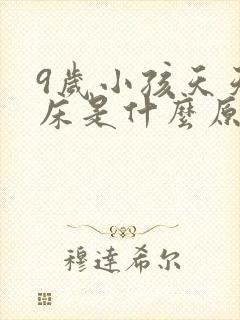 9歲小孩天天
床是什麼原
穆達希尔